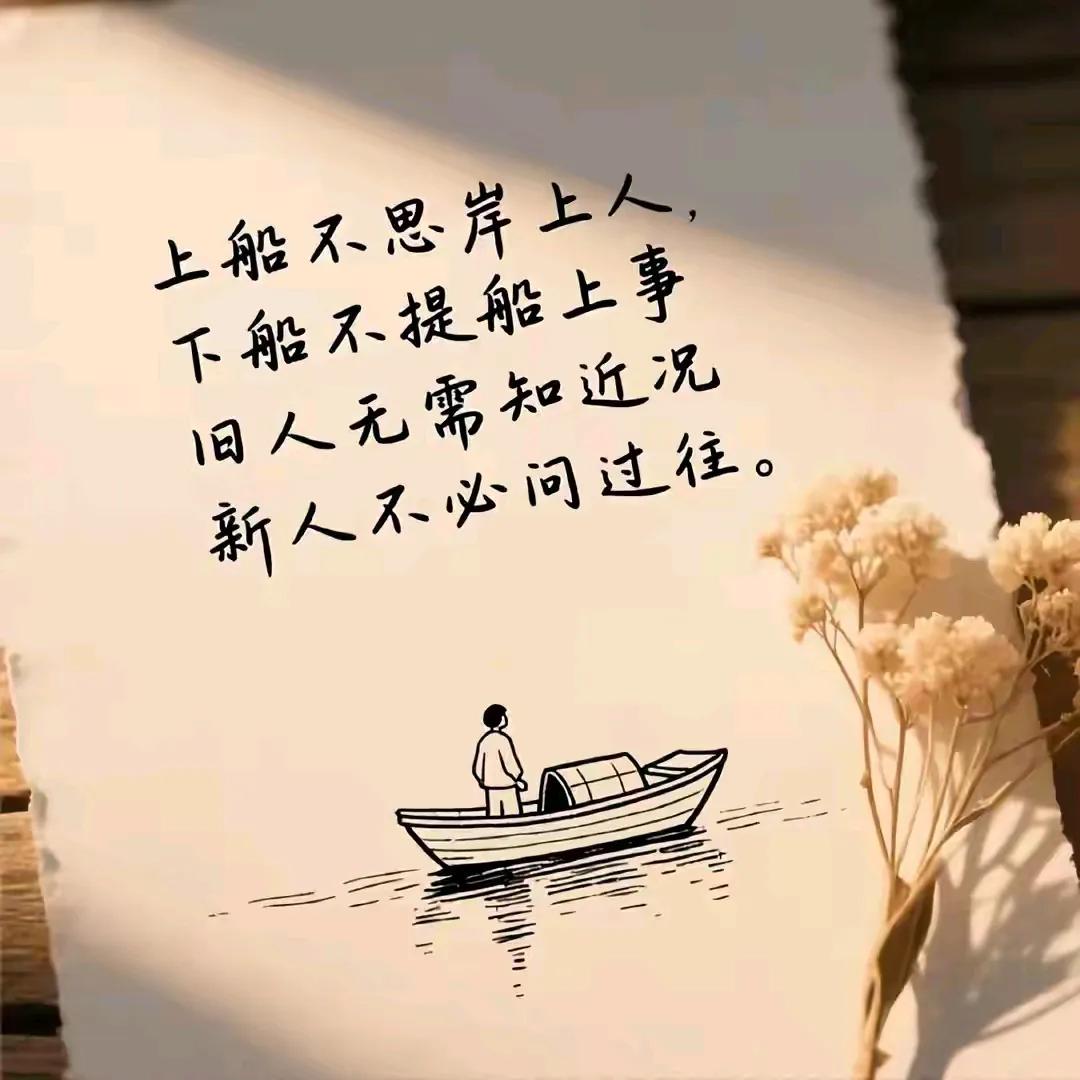 上船不思岸上人,
下船不提船上事
旧人无需知近况
新人不必问过往。